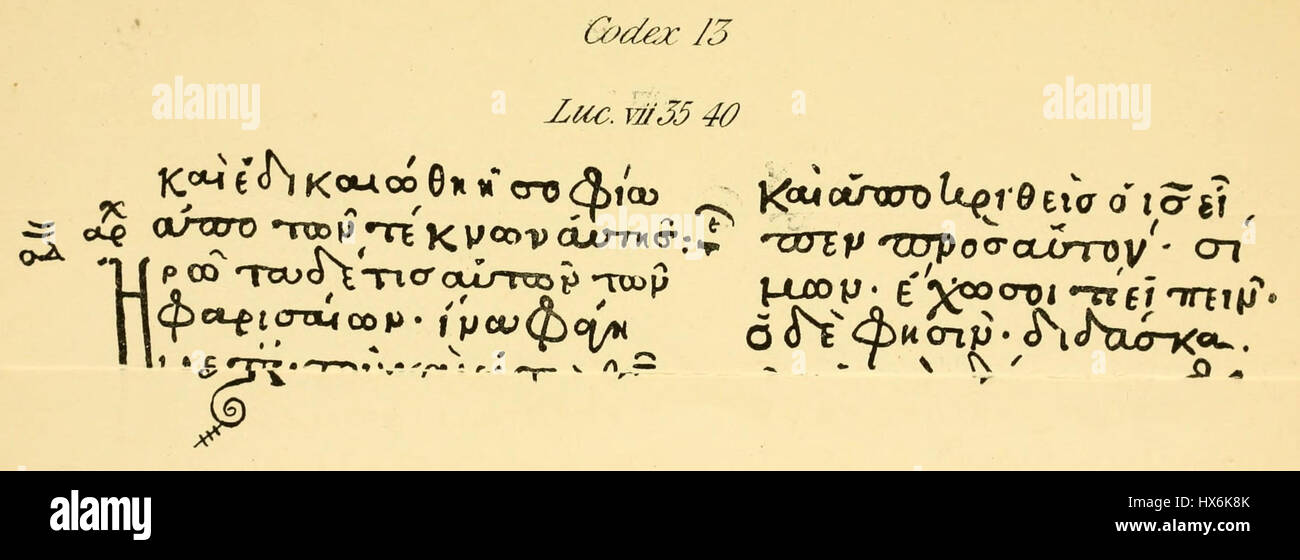 Codex 13
Luc. vii 35 40
καὶ ἐδικαιώθη ἡ σοφία
ἀπὸ τῶν τέκνων αὐτῆς·
ἠρώτα δέ τις αὐτὸν τῶν
φαρισαίων· ἵνα φάγη
καὶ ἀποκριθεὶς ὁ ι̅ς̅ εἶ
πεν πρὸς αὐτόν· σί
μων· ἔχω σοί τί εἰπεῖν·
ὁ δὲ φησὶν· διδάσκα
alamy
a
a
alamy
a
alamy
Image ID: HX6K8K
www.alamy.com